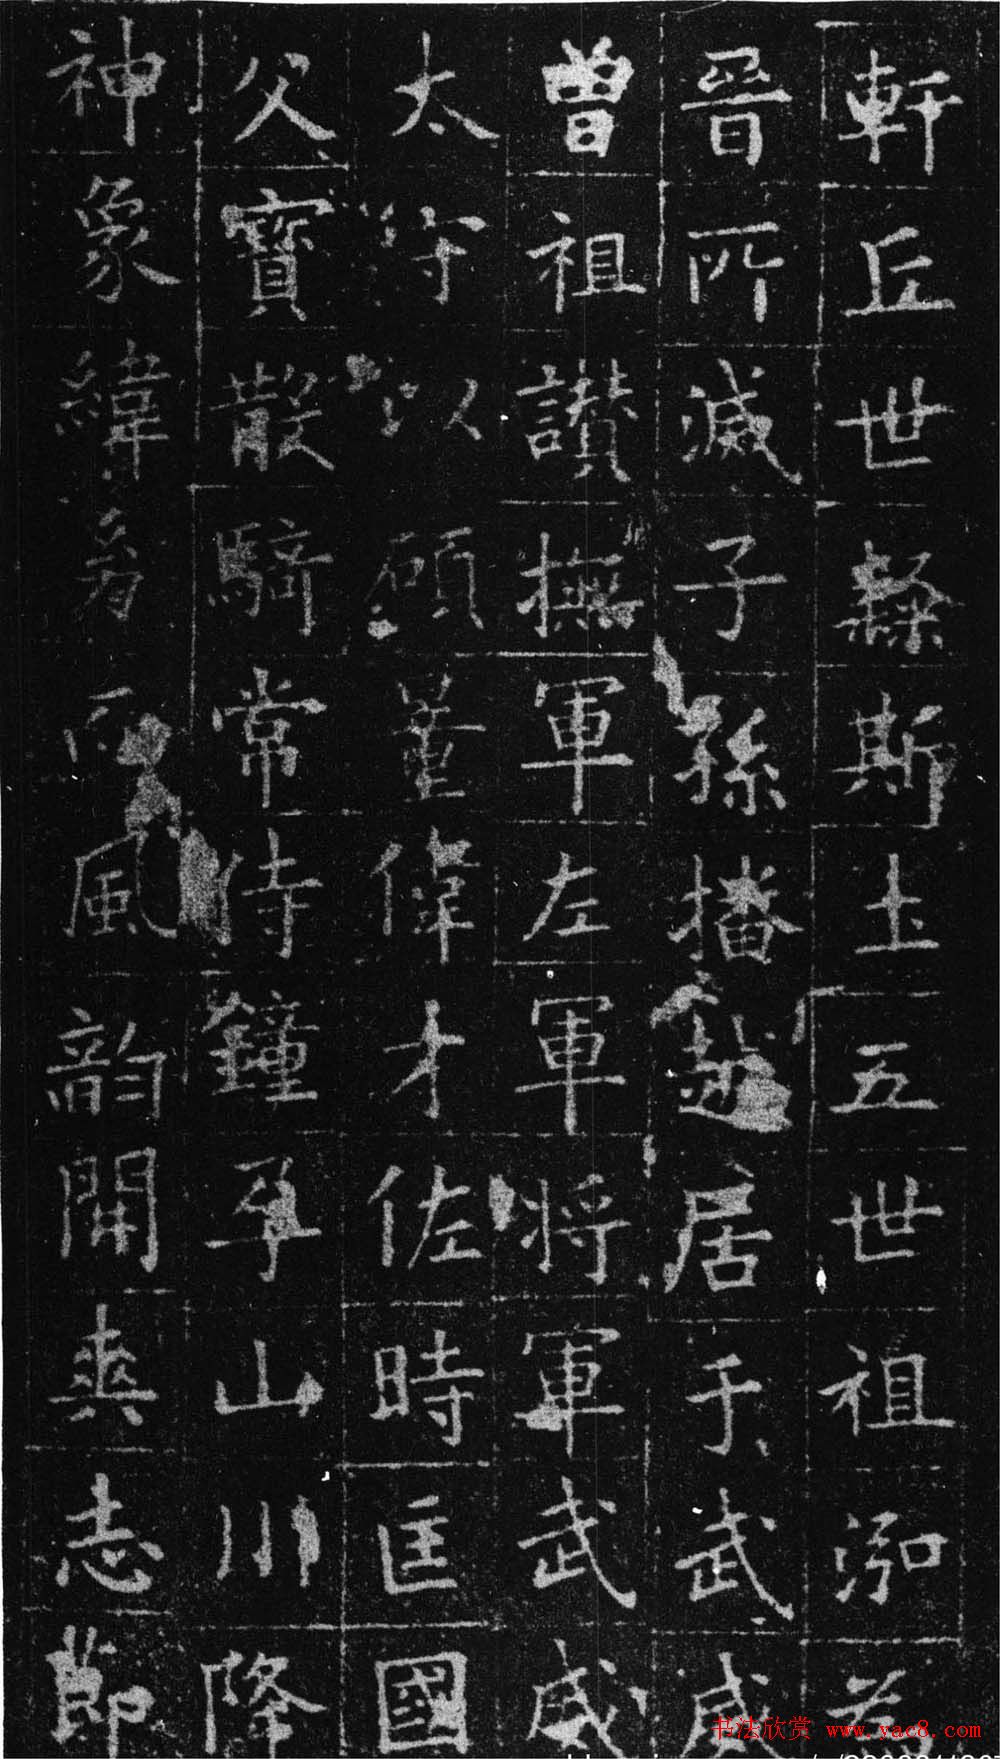 軒丘世繇斯土五世祖泓為
晉所滅子孫播越居于武威
曾祖讃撫軍左軍將軍武威
太守以碩量偉才佐時匡國
父寶散騎常侍鐘孕山川降
神象緯者而風韵開爽志節
书法欣赏 www.yac8.com